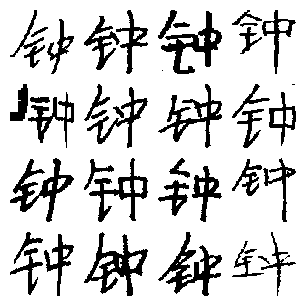 钟钟钟钟
钟钟钟钟
钟钟钟钟
钟钟钟钟